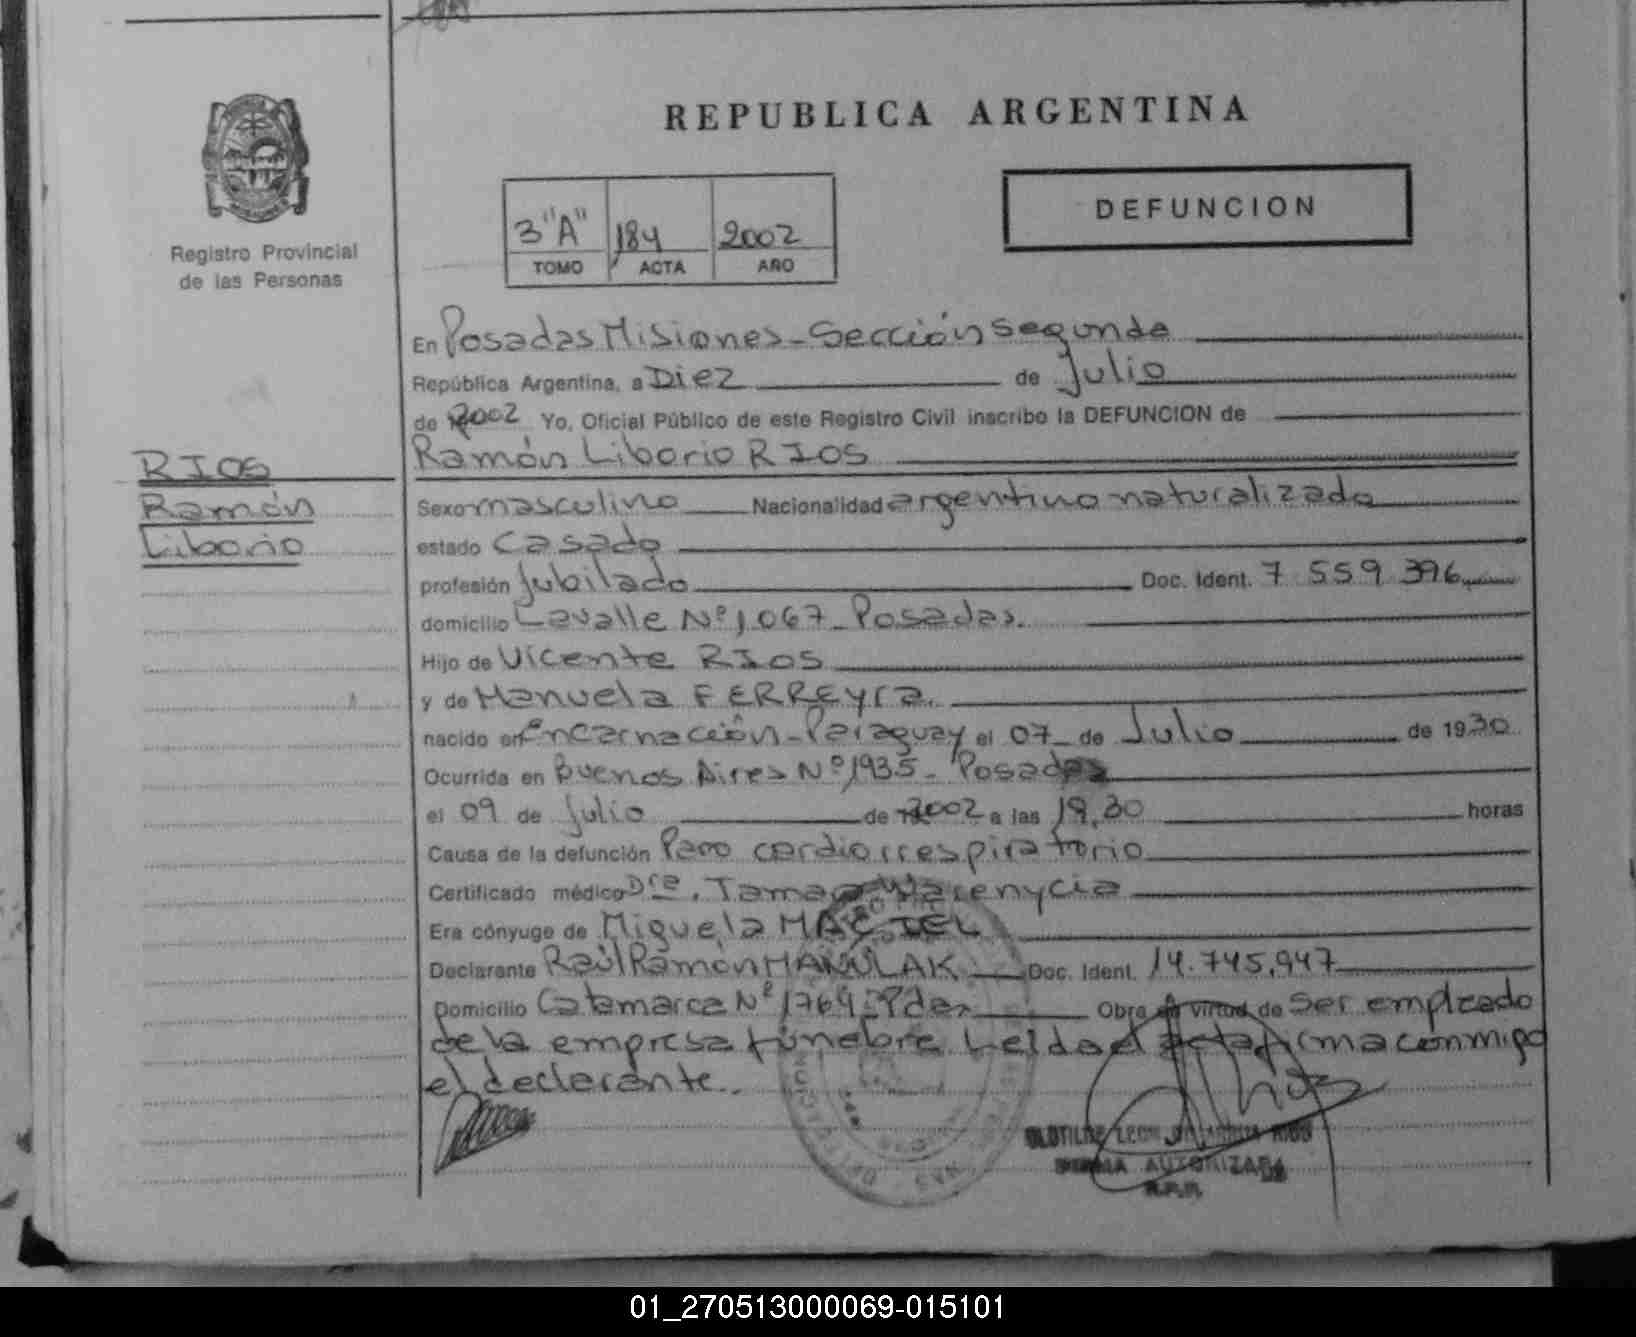 REPUBLICA ARGENTINA
Registro Provincial
de las Personas
3 "A" 184 2002
TOMO ACTA AÑO
DEFUNCION
En Posadas Misiones - Sección Segunda
República Argentina, a Diez de Julio
de 2002 Yo, Oficial Público de este Registro Civil inscribo la DEFUNCION de
Ramón Liborio RIOS
RIOS
Ramón
Liborio
Sexo masculino Nacionalidad argentino naturalizado
estado Casado
profesión Jubilado Doc. Ident. 7 559 396
domicilio Lavalle Nº 1.067 - Posadas.
Hijo de Vicente RIOS
y de Manuela FERREYra.
nacido en Encarnación - Paraguay el 07 de Julio de 1930
Ocurrida en Buenos Aires Nº 1935 - Posadas
el 09 de Julio de 2002 a las 19,30 horas
Causa de la defunción Paro cardiorrespiratorio
Certificado médico Dra. Tamara
Era cónyuge de Miguela MACIEL
Declarante Raúl Ramón Doc. Ident. 14.745.947
Domicilio Catamarca Nº 1764 - Pdas Obra en virtud de ser empleado
de la empresa fúnebre Leida el acta firma conmigo
el declarante.
FIRMA AUTORIZADA
R.P.P.
01_270513000069-015101